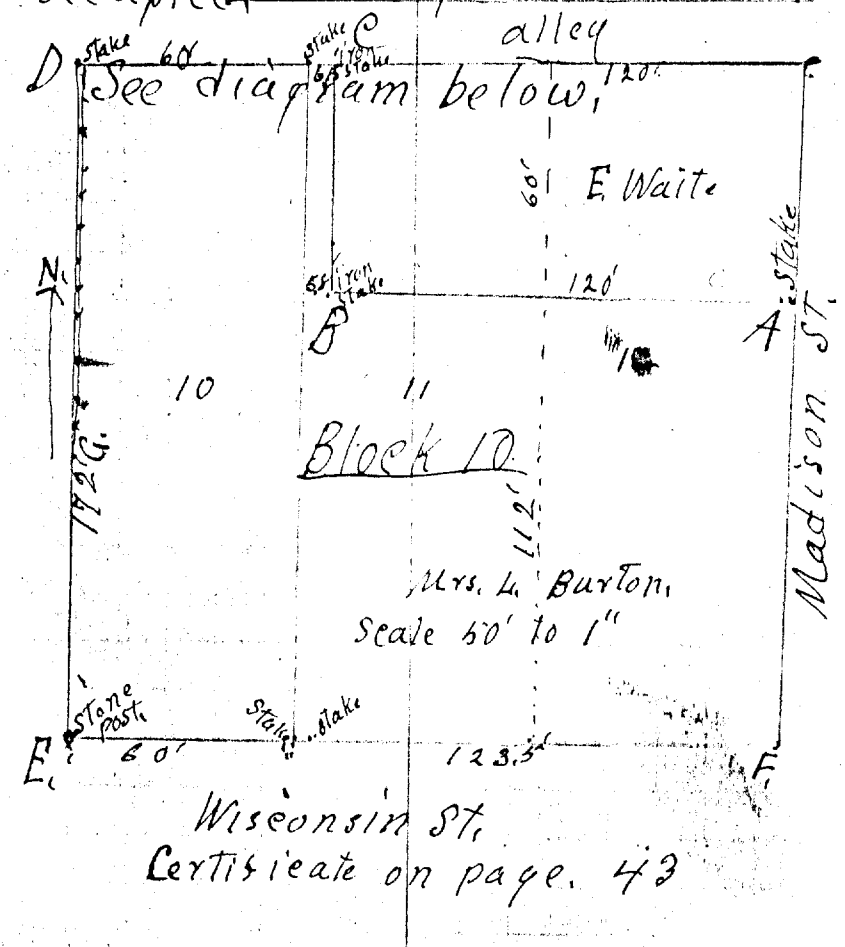 alley
D stake 60' stake C iron stake 6.5 120'
See diagram below,
60' E. Waite
N.
5.8 iron stake 120' stake
B A
10 11
Block 10
172' G.
Madison St.
112'
Mrs. L. Burton,
Scale 50' to 1"
Stone Post, stake stake
E. 60' 123.5' F.
Wisconsin St,
Certificate on page. 43